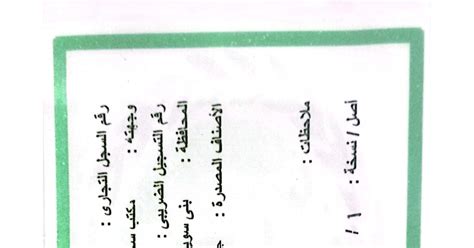 رقم السجل التجارى :
وجهته : مكتب
رقم التسجيل الضريبى :
المحافظة : بنى
الأصناف المصدرة :
ملاحظات :
أصل / نسخة : ١ /